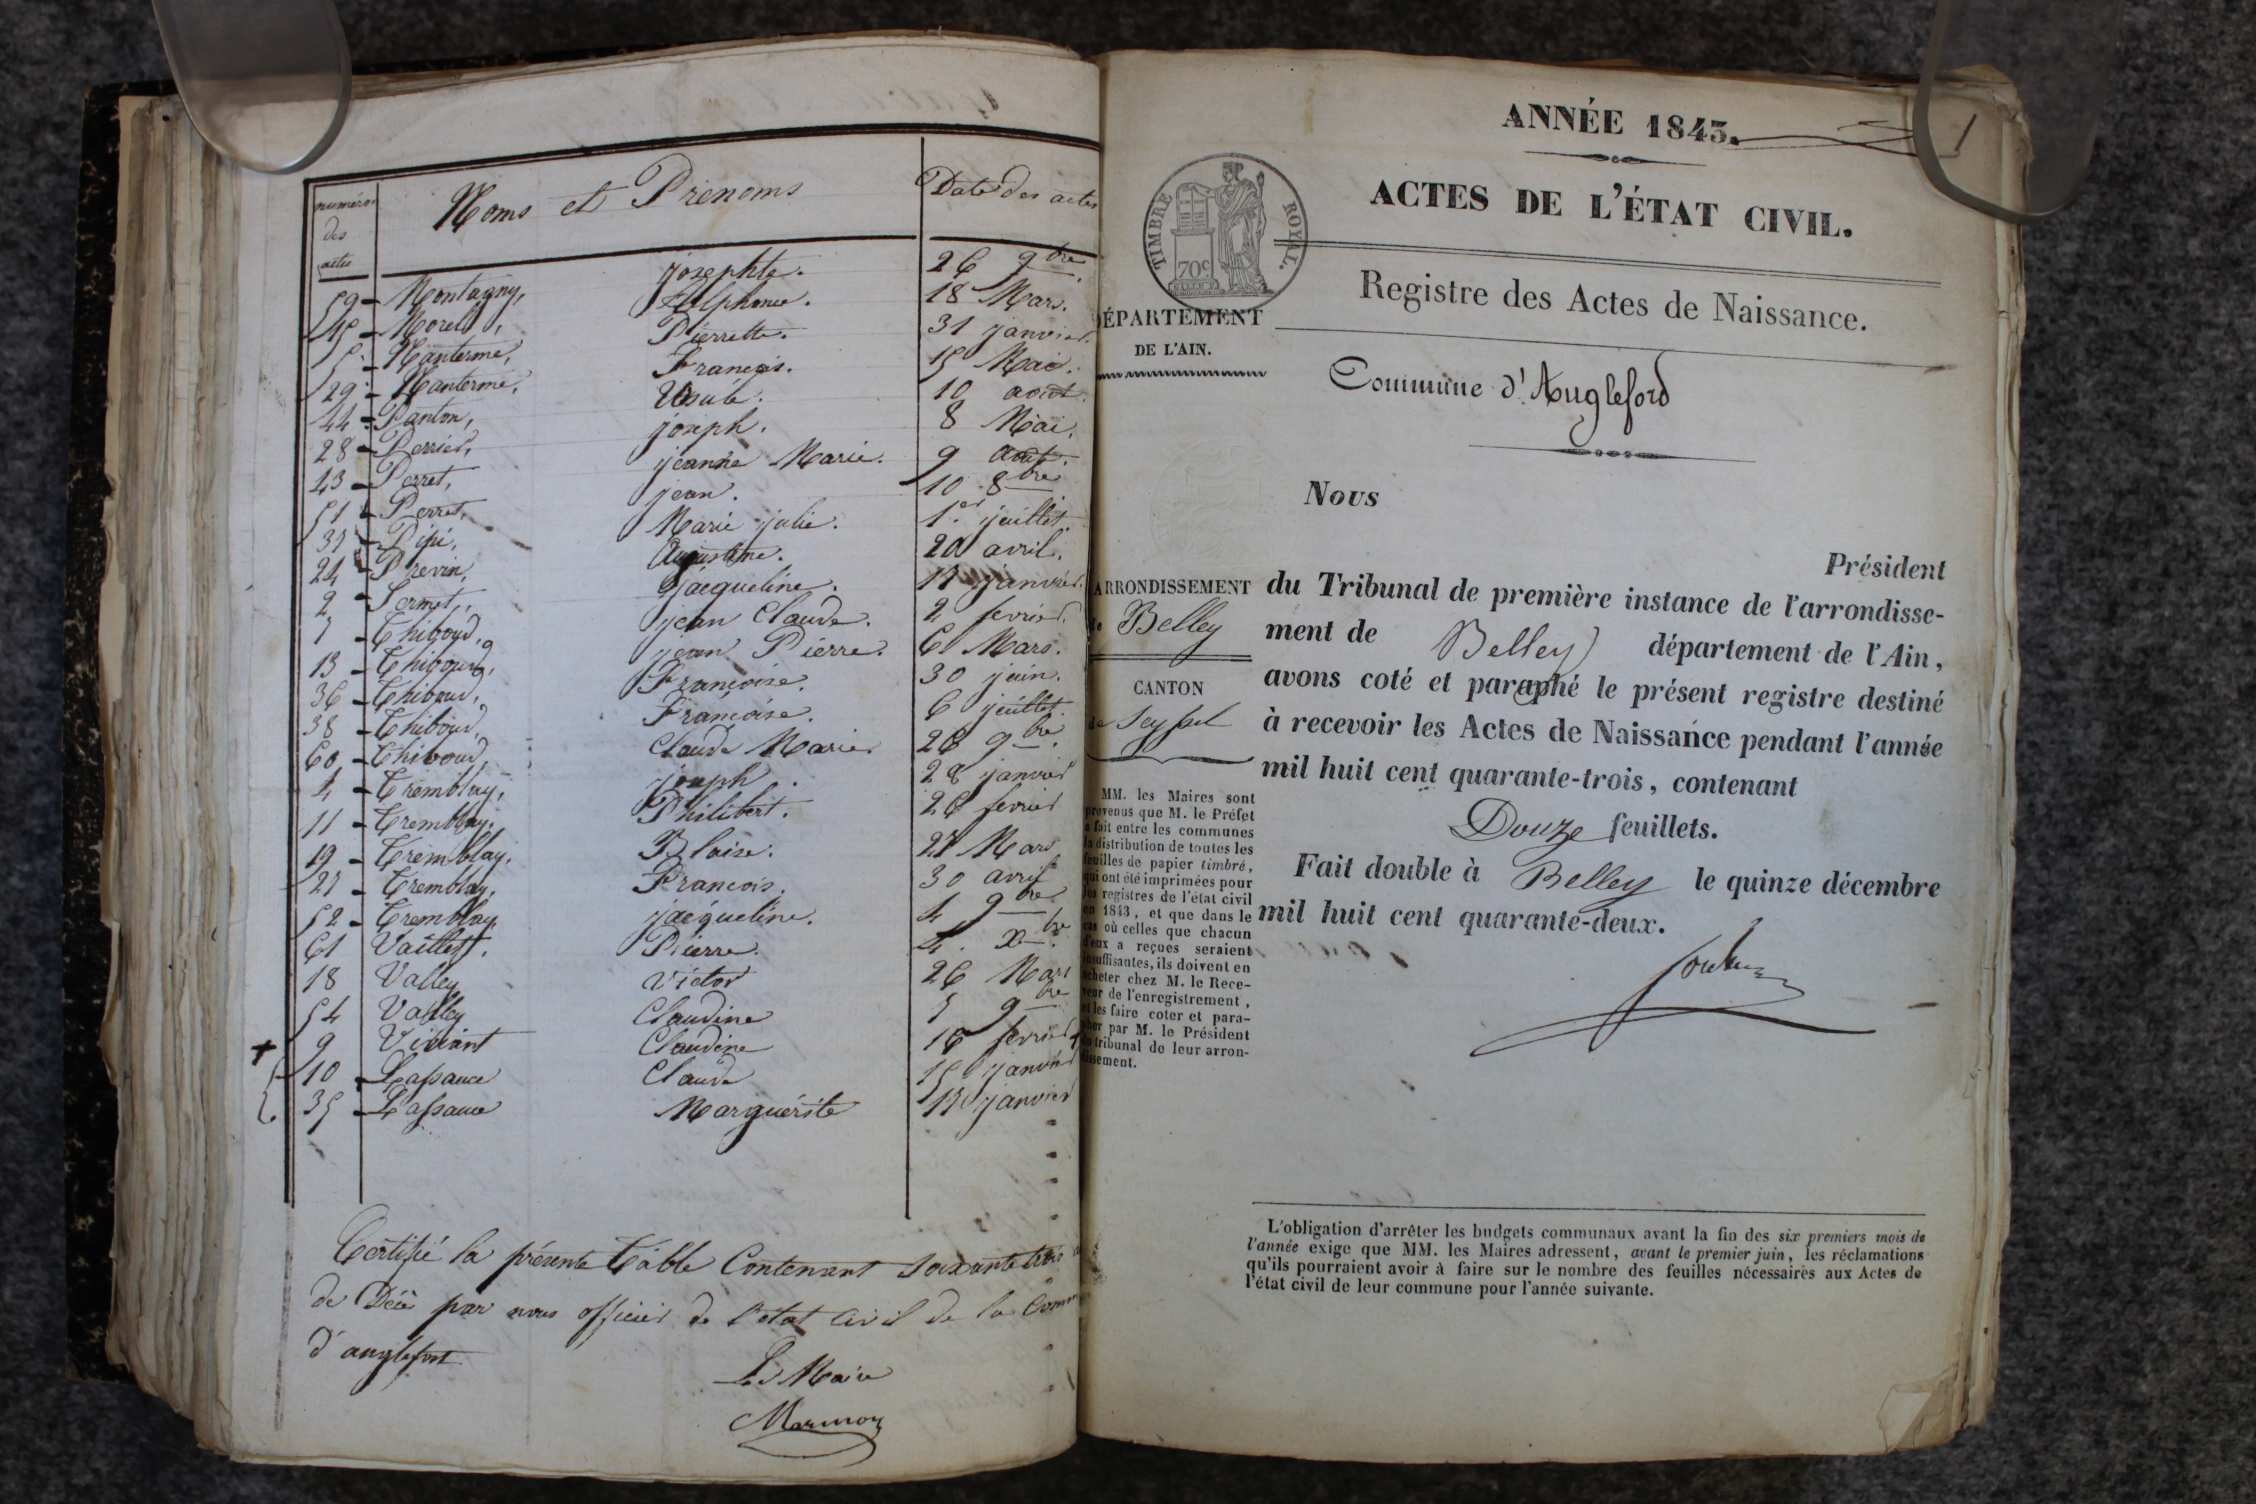 numéros des actes Noms et Prénoms Date des actes
59 - Montagny, josephte. 26 9bre.
15 - Morel, Alphonse. 18 Mars.
5 - Manterme, Pierrette. 31 janvier.
29 - Manterme, François. 15 Mai.
44 - Panton, Ursule. 10 aout.
28 - Perrier, joseph. 8 Mai.
43 - Perret, jeanne Marie. 9 aout.
51 - Perret, jean. 10 8bre
37 - Pipi, Marie julie. 1er juillet.
24 - Prévin, Augustine. 20 avril.
2 - Sermet, jacqueline. 17 janvier.
7 - Thiboud, jean Claude. 2 fevrier.
13 - Thiboud, jean Pierre. 6 Mars.
36 - Thiboud, Françoise. 30 juin.
38 - Thiboud, Françoise. 6 juillet.
60 - Thiboud, Claude Marie 28 9bre.
4 - Tremblay, joseph. 28 janvier
11 - Tremblay. Philibert. 26 fevrier
19 - Tremblay. Blaise. 27 Mars
27 - Tremblay, François. 30 avril
52 - Tremblay, jacqueline. 4 9bre
61 Vaillest. Pierre. 4. xbre.
18 Valley Victor 26 Mars
54 Valley Claudine 5 9bre
+ 9 Viviant Claudine 16 fevrier +
10 - Lassauce Claude 15 janvier
35 - Lassauce Marguérite 17 janvier
Certifié la présente Table Contenant soixante trois
de Décè par nous officier de l'état civil de la Comm
d'anglefort
Le Maire
Marmoy
1
ANNÉE 1843.
ACTES DE L'ÉTAT CIVIL.
TIMBRE ROYAL.
70c
Registre des Actes de Naissance.
DÉPARTEMENT
DE L'AIN.
Commune d'Angleford
Nous
Président
ARRONDISSEMENT
de Belley
CANTON
de Seyssel
du Tribunal de première instance de l'arrondisse-
ment de Belley département de l'Ain,
avons coté et paraphé le présent registre destiné
à recevoir les Actes de Naissance pendant l'année
mil huit cent quarante-trois, contenant
Douze feuillets.
Fait double à Belley le quinze décembre
mil huit cent quarante-deux.
MM. les Maires sont
prévenus que M. le Préfet
a fait entre les communes
la distribution de toutes les
feuilles de papier timbré,
qui ont été imprimées pour
les registres de l'état civil
en 1843, et que dans le
cas où celles que chacun
d'eux a reçues seraient
insuffisantes, ils doivent en
acheter chez M. le Rece-
veur de l'enregistrement,
et les faire coter et para-
pher par M. le Président
du tribunal de leur arron-
dissement.
L'obligation d'arrêter les budgets communaux avant la fin des six premiers mois de
l'année exige que MM. les Maires adressent, avant le premier juin, les réclamations
qu'ils pourraient avoir à faire sur le nombre des feuilles nécessaires aux Actes de
l'état civil de leur commune pour l'année suivante.